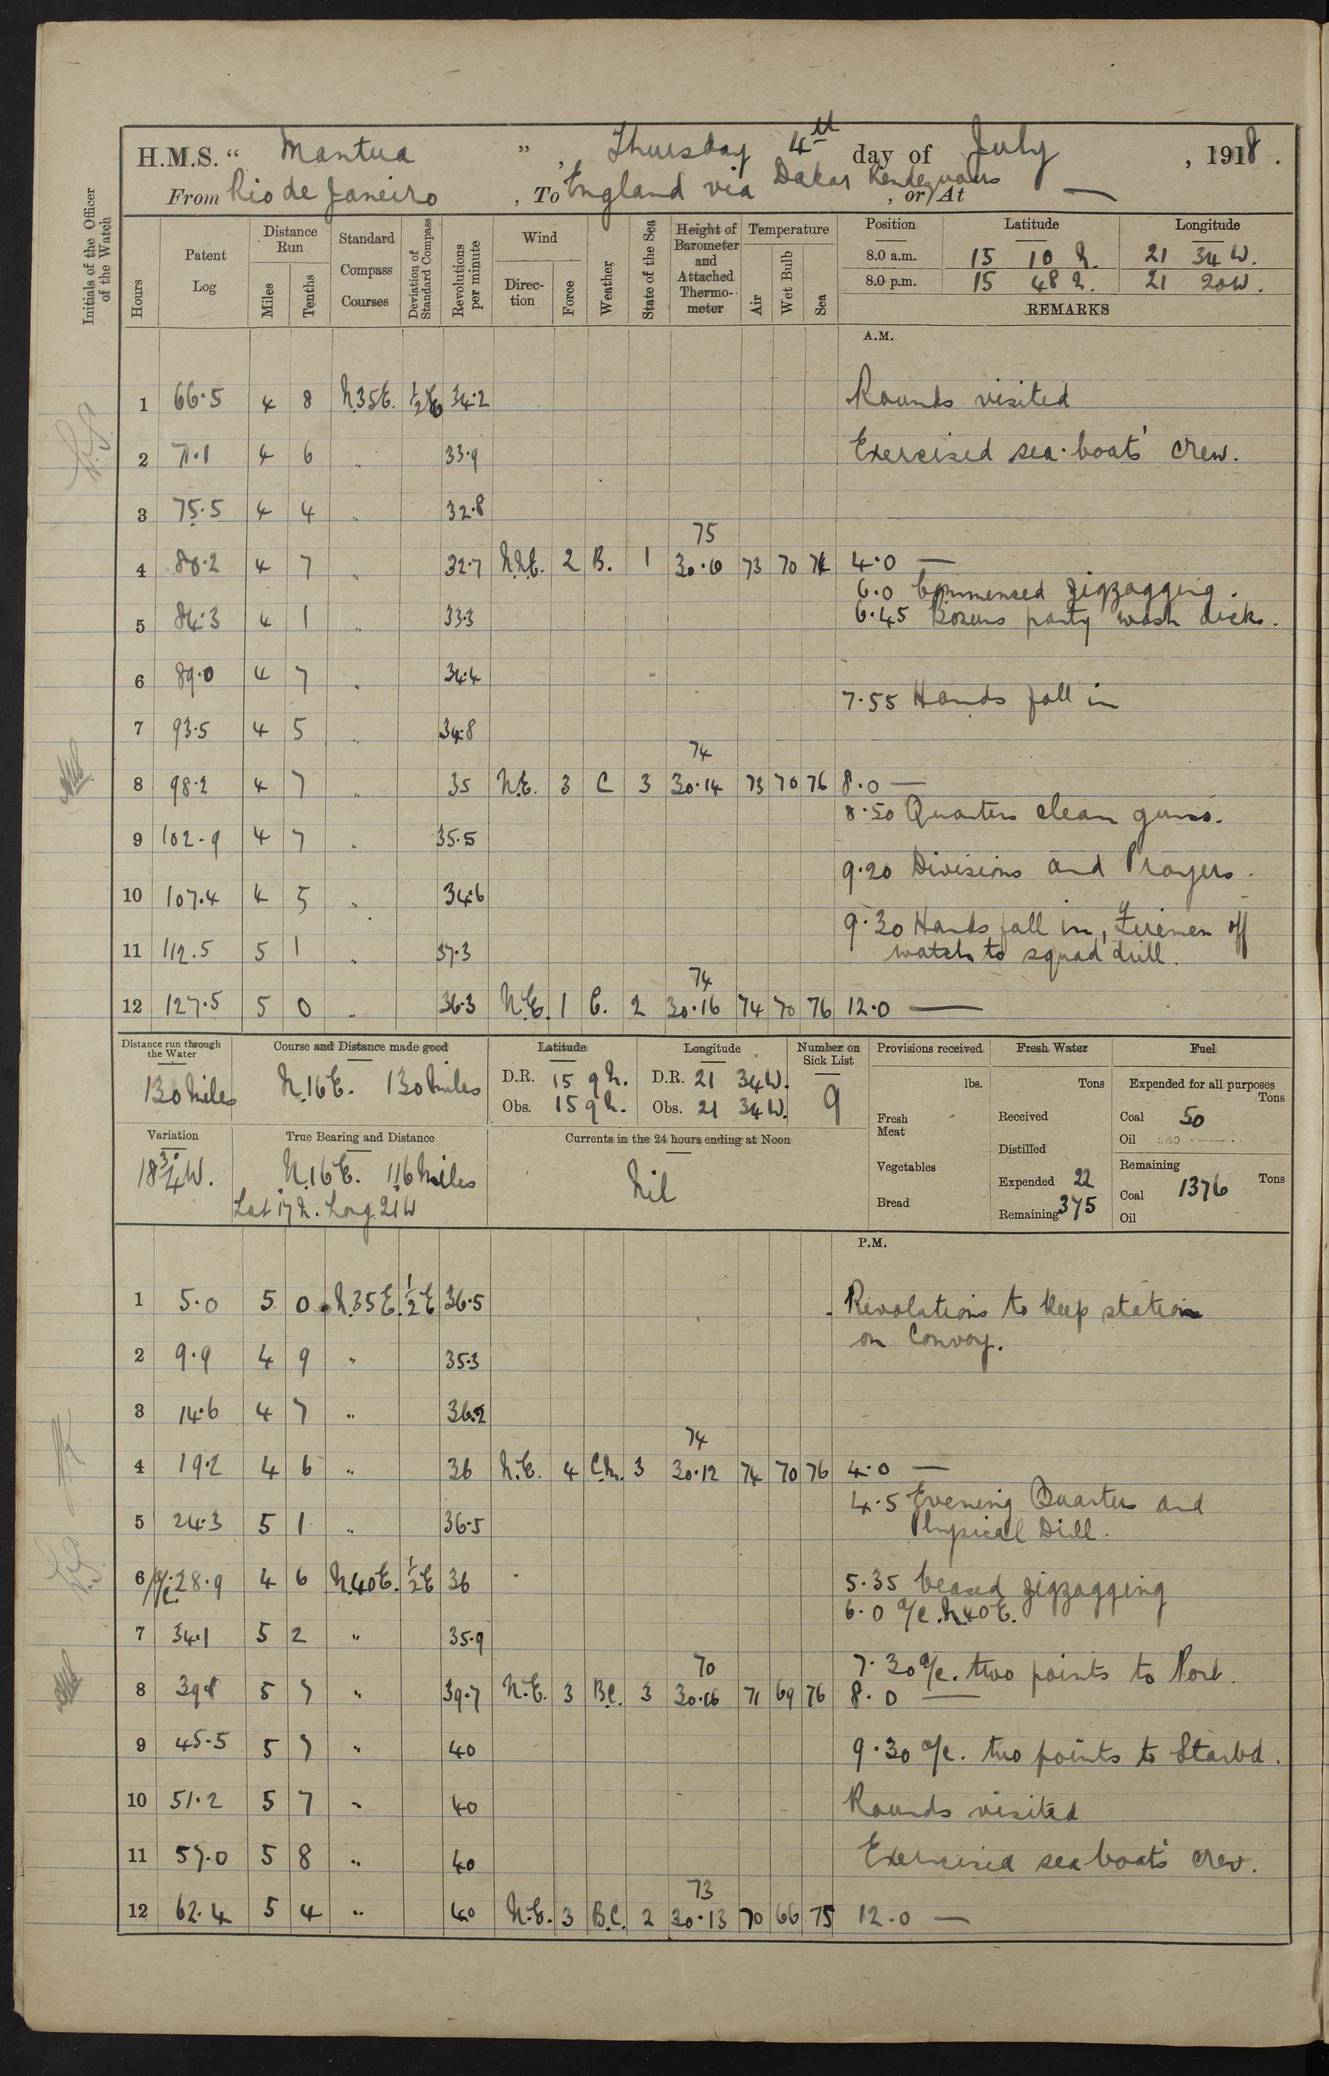 H.M.S. " Mantua " , Thursday 4th day of July , 1918 .
From Rio de Janeiro , To England via Dakar Rendezvous , or At —
Initials of the Officer of the Watch
Hours
Patent Log
Distance Run
Miles
Tenths
Standard Compass Courses
Deviation of Standard Compass
Revolutions per minute
Wind
Direction
Force
Weather
State of the Sea
Height of Barometer and Attached Thermometer
Temperature
Air
Wet Bulb
Sea
Position Latitude Longitude
8.0 a.m. 15 10 N. 21 34 W.
8.0 p.m. 15 48 N. 21 20 W.
REMARKS
A.M.
1 66.5 4 8 N.35E. ½E 34.2 Rounds visited
2 71.1 4 6 " 33.9 Exercised sea-boats' crew.
3 75.5 4 4 " 32.8
75
4 80.2 4 7 " 32.7 N.N.E. 2 B. 1 30.10 73 70 74 4.0 —
6.0 Commenced zigzagging.
5 84.3 4 1 " 33.3 6.45 Bosuns party wash decks.
6 89.0 4 7 " 34.4
7.55 Hands fall in
7 93.5 4 5 " 34.8
74
8 98.2 4 7 " 35 N.E. 3 C 3 30.14 73 70 76 8.0 —
8.50 Quarters clean guns.
9 102.9 4 7 " 35.5
9.20 Divisions and Prayers.
10 107.4 4 5 " 34.6
9.30 Hands fall in, Firemen off
11 112.5 5 1 " 37.3 watch to squad drill.
74
12 127.5 5 0 " 36.3 N.E. 1 C. 2 30.16 74 70 76 12.0 —
Distance run through the Water
130 Miles
Course and Distance made good
N.16E. 130 Miles
Latitude
D.R. 15 9 N.
Obs. 15 9 N.
Longitude
D.R. 21 34 W.
Obs. 21 34 W.
Number on Sick List
9
Provisions received
lbs.
Fresh Meat
Vegetables
Bread
Fresh Water
Tons
Received
Distilled
Expended 22
Remaining 375
Fuel
Expended for all purposes
Tons
Coal 50
Oil
Remaining
Tons
Coal 1376
Oil
Variation
18¾W.
True Bearing and Distance
N.16E. 116 Miles
Lat 17 N. Long 21 W
Currents in the 24 hours ending at Noon
Nil
P.M.
1 5.0 5 0 N.35E. ½E 36.5 Revolutions to keep station
on Convoy.
2 9.9 4 9 " 35.3
3 14.6 4 7 " 36.2
74
4 19.2 4 6 " 36 N.E. 4 C.M. 3 30.12 74 70 76 4.0 —
4.5 Evening Quarters and
5 24.3 5 1 " 36.5 Physical Drill.
6 a/c. 28.9 4 6 N.40E. ½E 36 5.35 Ceased zigzagging
6.0 a/c. N40E.
7 34.1 5 2 " 35.9
70 7.30 a/c. two points to Port.
8 39.8 5 7 " 39.7 N.E. 3 B.C. 3 30.16 71 69 76 8.0 —
9 45.5 5 7 " 40 9.30 a/c. two points to Starbd.
10 51.2 5 7 " 40 Rounds visited
11 57.0 5 8 " 40 Exercised sea boats crew.
73
12 62.4 5 4 " 40 N.E. 3 B.C. 2 30.13 70 66 75 12.0 —